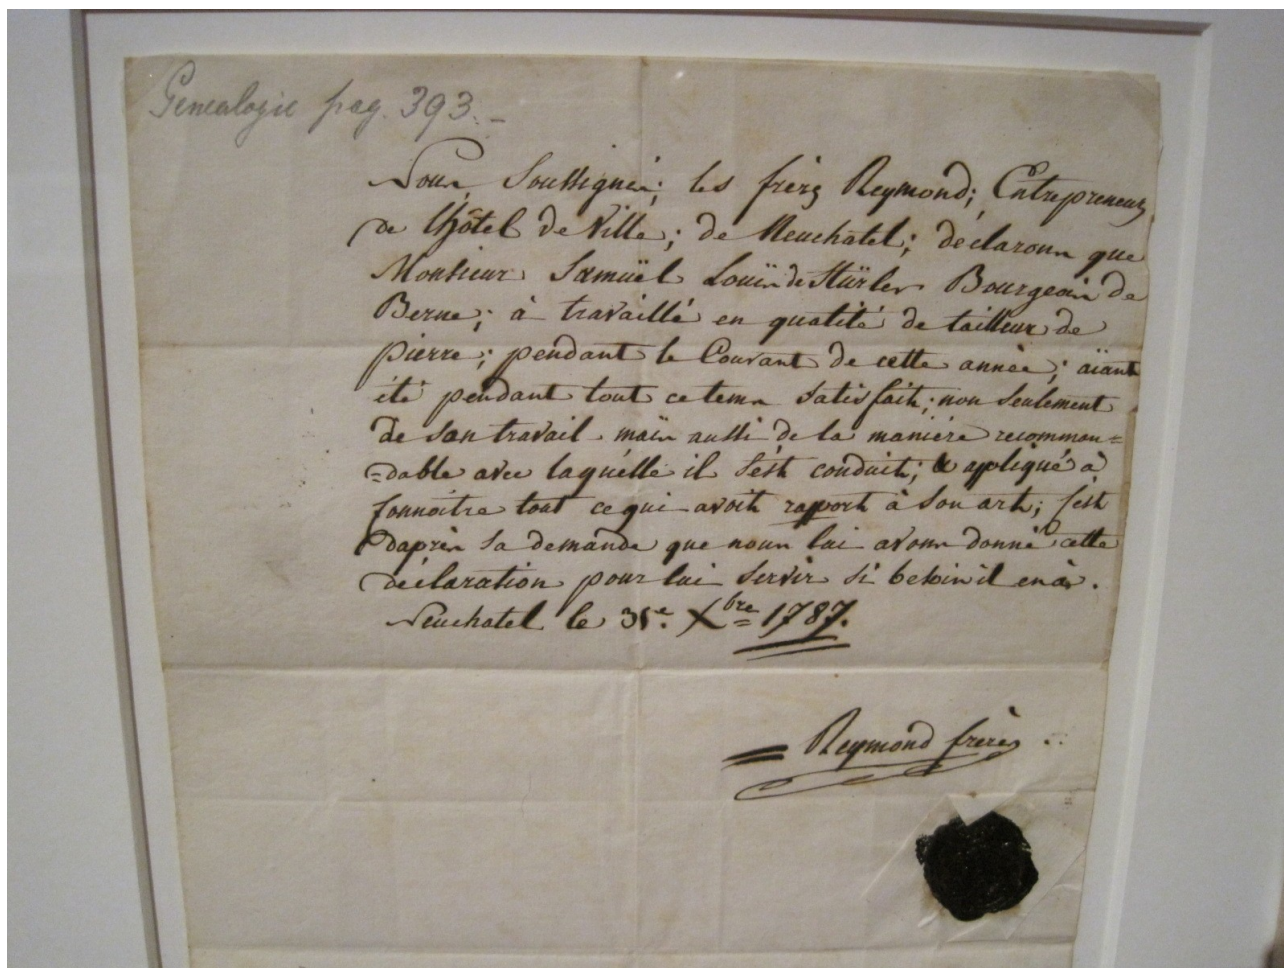 Genealogie pag. 393.-
Nous Soussignés; les frères Reymond; Entrepreneurs
de lhôtel de Ville; de Neuchatel; declarons que
Monsieur Samuël Louïs de Stürler Bourgeois de
Berne; à travaillé en qualité de tailleur de
pierre; pendant le Courant de cette année; aïant
été pendant tout ce tems satisfait; non seulement
de son travail maïs aussi de la manière recomman=
=dable avec laquélle il s'ést conduit; & appliqué à
Connoitre tout ce qui avoit raport à son art; C'est
daprès sa demande que nous lui avons donné cette
déclaration pour lui servir si besoin il en à.
Neuchatel le 31e. Xbre 1787.
Reymond frères